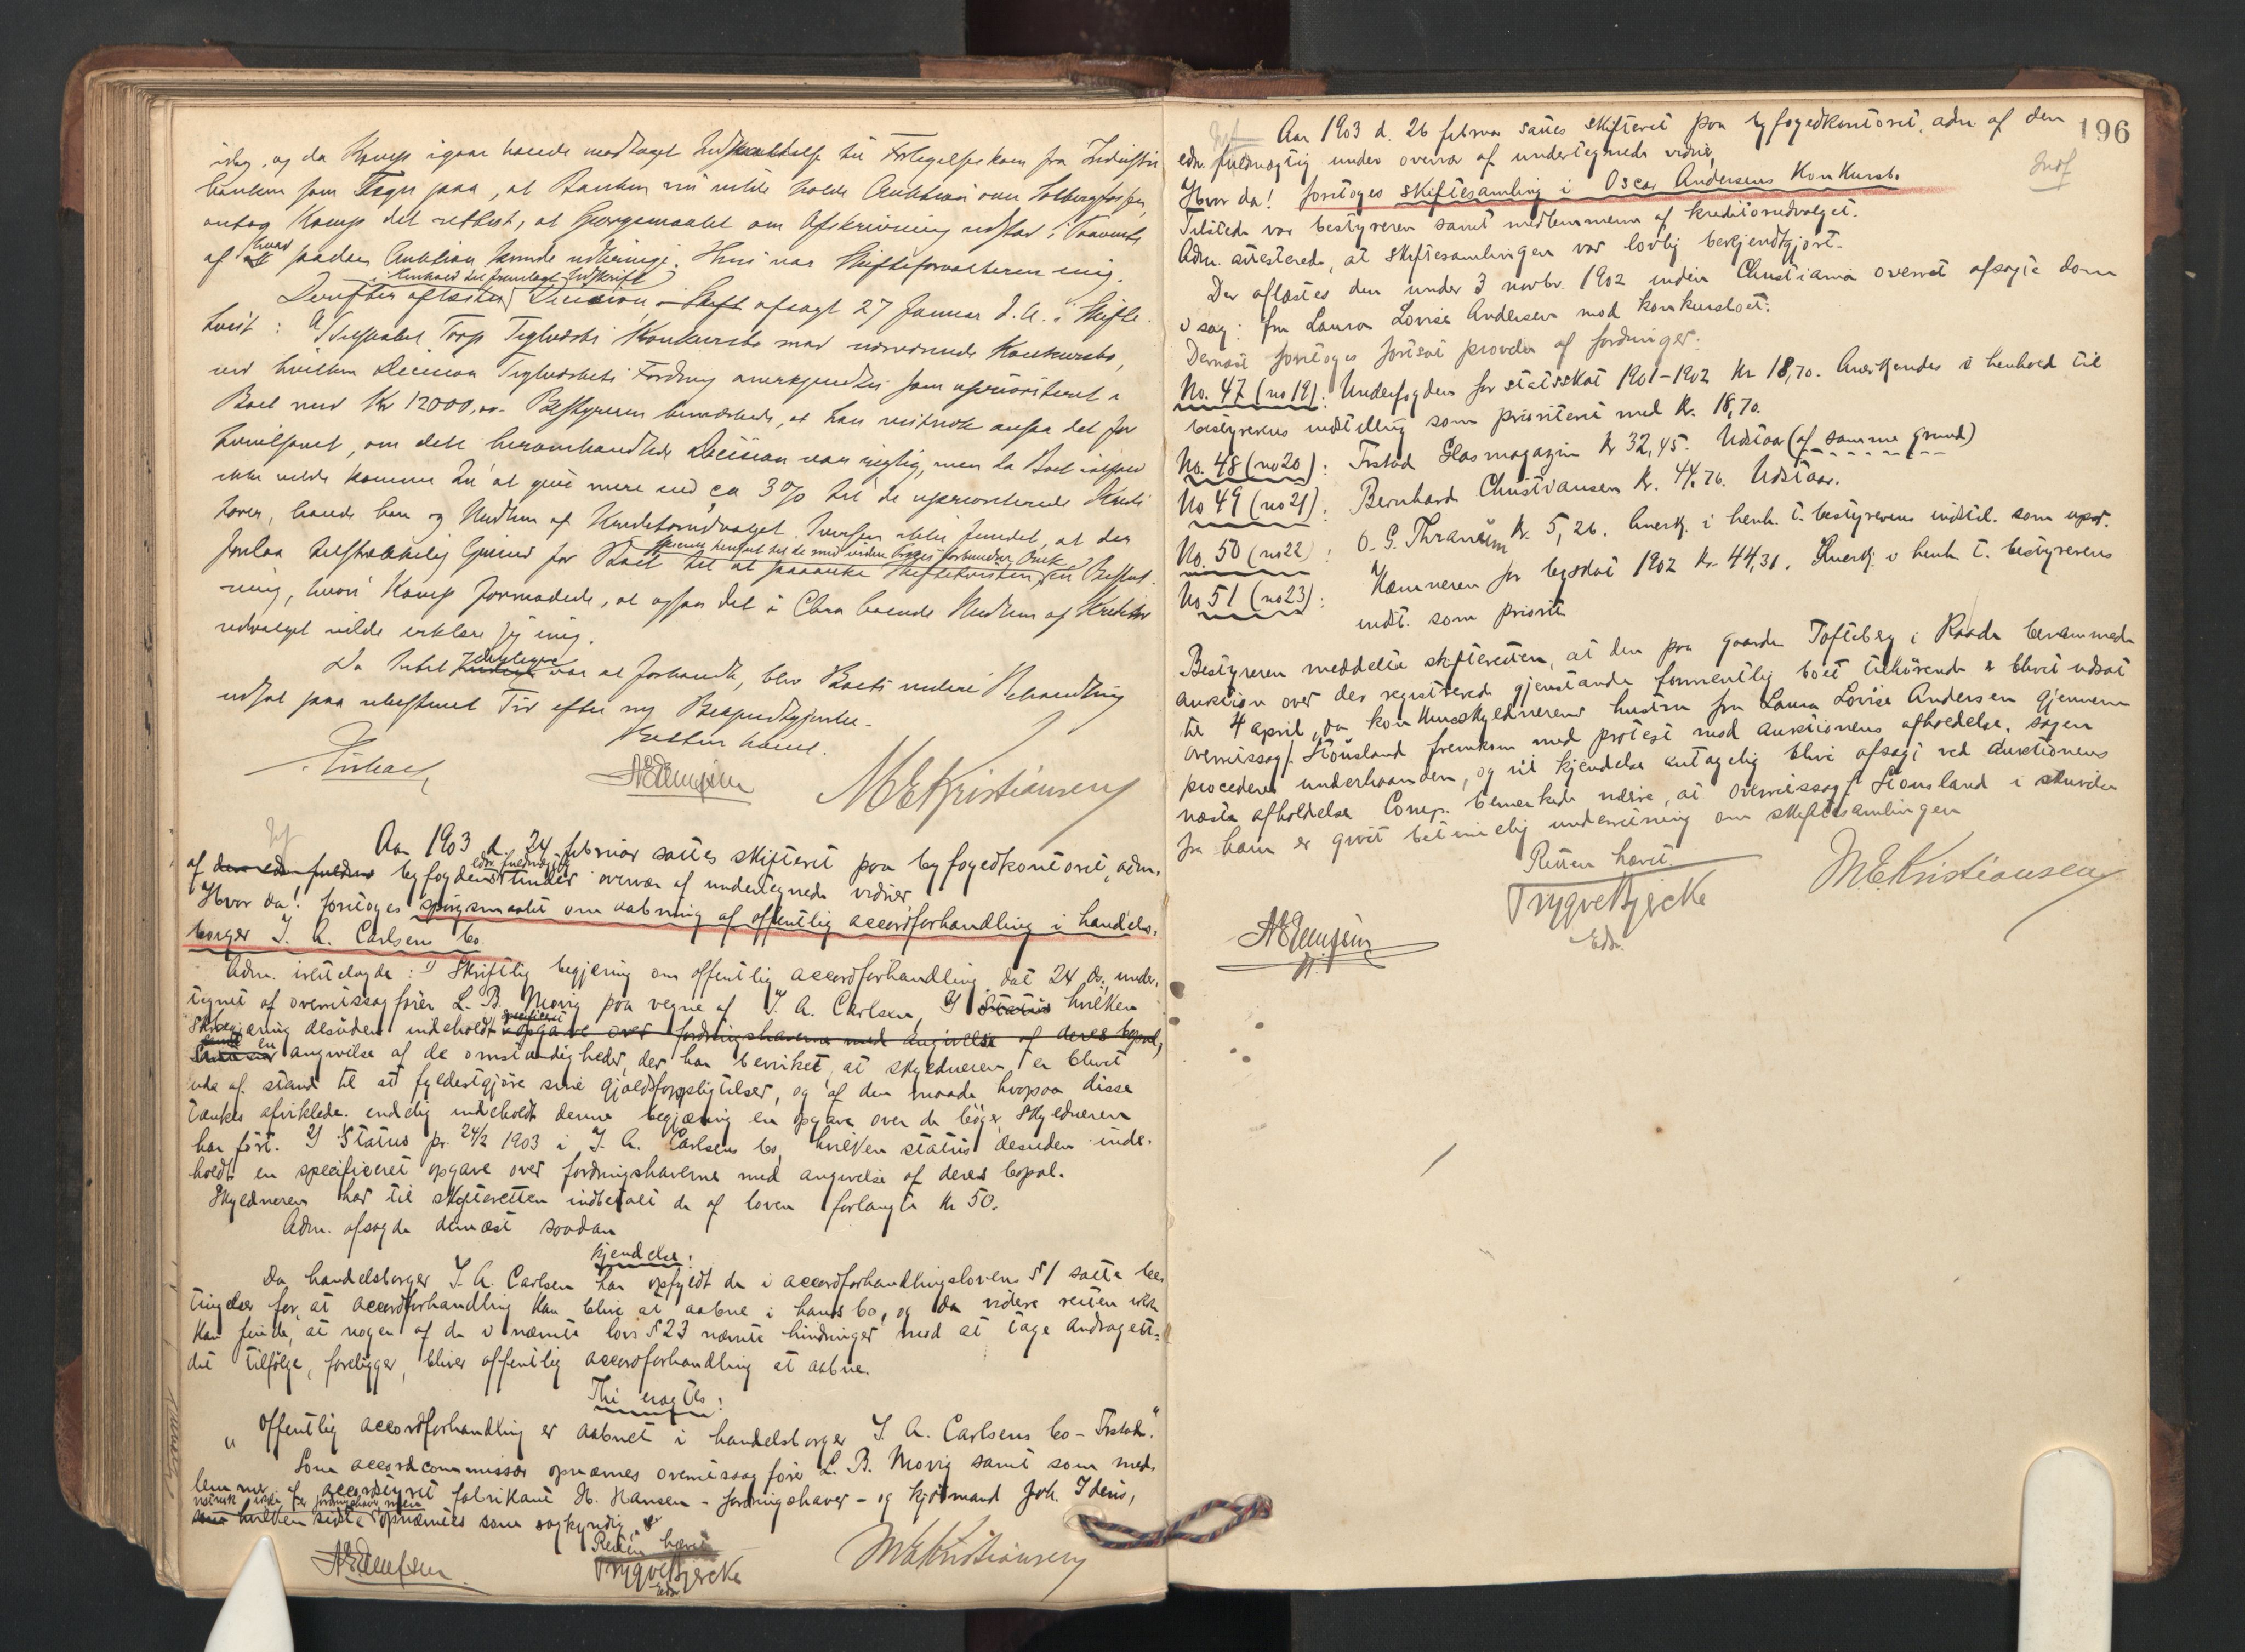 idag, og da Komp igaar havde modtaget Indkaldelse til Fristgelse kom fra Industri
banken som Tegn paa, at Banken nu vilde holde Auktion over Solbergfossen,
antog Komp det rettest, at Spørgsmaalet om Afskrivning udstod i Paavente
af hvad saadan Auktion kunde udbringe. Heri var Skifteforvalteren enig.
i Henhold til fremlagt Udskrift
Derefter oplæstes Decision afsagt 27 Januar d. A. i Skifte
tvist: Aktieselskabet Torp Teglværks Konkursbo mod nærværende Konkursbo,
ved hvilken Decision Teglværkets Fordring anerkjendtes som uprioriteret i
Boet med Kr 12000,00. Bestyreren bemærkede, at han vistnok ansaa det for
tvivlsomt, om dette heromhandlede Decision var rigtig, men da Boet ialfald
ikke vilde komme til at give mere end ca 3% til de uprioriterede Kredi
torer, havde han og Medlem af Kreditorudvalget Iversen ikke fundet, at der
specielt henseet til de med videre Proces forbundne Omk.
forlaa tilstrækkelig Grund for Boet til at paaanke Skiftetvisten, en Beslut-
ning, hvori Komp formodede, at ogsaa det i Chra boende Medlem af Kreditor
udvalget vilde erklære sig enig.
Da Intet yderligere var at forhandle, blev Boets videre Behandling
udsat paa ubestemt Tid efter ny Bekjendtgjørelse.
Retten hævet.
M E Kristiansen
Aar 1903 d. 24 februar sattes skifteret paa byfogedkontoret, adm.
af den edsv. fuldm. byfogdens edsv. fuldmægtig under overvær af undertegnede vidner,
Hvor da! foretoges spørgsmaalet om aabning af offentlig accordforhandling i handels-
borger J. A. Carlsens bo.
Adm. irettelagde: 1) Skriftlig begjæring om offentlig accordforhandling, dat 24 ds, under-
tegnet af overretssagfører L. B. Morvig paa vegne af J. A. Carlsen, 2) Status hvilken
Skrbegjæring desuden indeholdt specificeret opgave over fordringshaverne med angivelse af deres bopæl,
en angivelse af de omstændigheder, der har bevirket, at skyldneren er blevet
ude af stand til at fyldestgjøre sine gjældsforpligtelser, og af den maade, hvorpaa disse
tænkes afviklede. endelig indeholdt denne begjæring en opgave over de bøger, skyldneren
har ført. 2) Status pr. 24/2 1903 i J. A. Carlsens bo, hvilken status desuden inde-
holdt en specificeret opgave over fordringshaverne med angivelse af deres bopæl.
Skyldneren har til skifteretten indbetalt de af loven forlangte Kr 50.
Adm. afsagde dernæst saadan
kjendelse:
Da handelsborger J. A. Carlsen har opfyldt de i accordforhandlingslovens § 1 satte be
tingelser for, at accordforhandling kan blive at aabne i hans bo, og da videre retten ikke
kan finde, at nogen af de i nævnte lovs § 23 nævnte hindringer mod at tage andragen-
det tilfølge, foreligger, bliver offentlig accordforhandling at aabne.
Thi eragtes:
"Offentlig accordforhandling er aabnet i handelsborger J. A. Carlsens bo - Frstad."
Som accordcommissær opnævnes overretssagfører L. B. Morvig samt som med-
lemmer accordstyret fabrikant H. Hansen - fordringshaver - og kjøbmand Joh. Idens,
vistnok ikke er fordringshaver, men
hvilken sidste opnævnes som sagkyndig.
Retten hævet
Trygve Bjercke
edsv.
M E Kristiansen
196
Aar 1903 d. 26 februar sattes skifteret paa byfogedkontoret, adm af den
edsv. fuldmægtig under overvær af undertegnede vidner,
Hvor da! foretoges skiftesamling i Oscar Andersens Konkursbo.
Tilstede var bestyreren samt medlemmerne af kreditorudvalget.
Adm. attesterede, at skiftesamlingen var lovlig bekjendtgjort.
Der oplæstes den under 3 novbr. 1902 inden Christiania overret afsagte dom
i sag: fru Laura Lovise Andersen mod konkursboet:
Dernæst foretoges fortsat prøvelse af fordringer:
No. 47 (no 19): Underfogden for statsskat 1901-1902 Kr 18,70. Anerkjendes i henhold til
bestyrerens indstilling som prioriteret med Kr. 18,70.
No. 48 (no 20): Frstad Glasmagazin Kr 32,45. Udstaar (af samme grund)
No 49 (no 21): Bernhard Christiansen Kr. 44,76. Udstaar.
No. 50 (no 22): O. G. Thranum Kr. 5,26. Anerkj. i henh. t. bestyrerens indstil. som upr.
No 51 (no 23): Kæmneren for byskat 1902 Kr. 44,31. Anerkj. i henh. t. bestyrerens
indst. som priorit.
Bestyreren meddelte skifteretten, at den paa gaarden Tofteberg i Raade berammede
auktion over der registrerede gjenstande formentlig boet tilhørende er blevet udsat
til 4 april, da konkursskyldnerens hustru fru Laura Lovise Andersen gjennem
overretssagf. Stousland fremkom med protest mod auktionens afholdelse. sagen
procederes underhaanden, og vil kjendelse antagelig blive afsagt ved auktionens
næste afholdelse. Comp. bemærkede videre, at overretssagf. Stousland i skrivelse
fra ham er givet betimelig underretning om skiftesamlingen
Retten hævet.
Trygve Bjercke
edsv.
M E Kristiansen